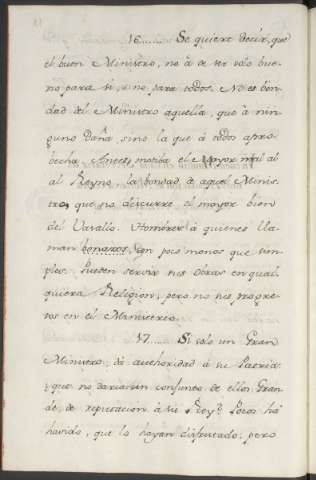 16...... Se quiere decir, que
el buen Ministro, no á de ser solo bue-
no para si, sino para todos. No es bon-
dad del Ministro aquella, que à nin-
guno daña, sino la que à todos apro-
becha. Antes motiba el mayor mal al
al Reyno la bondad de aquel Minis-
tro, que no discurre el mayor bien
del Vasallo. Hombres à quienes lla-
man bonazos, son poco menos que sim-
ples. Pueden servir sus obras en qual-
quiera Religion; pero no sus progre-
sos en el Ministerio.
17...... Si solo un Gran
Ministro, dà authoridad à su Patria;
que no daria un conjunto de ellos Gran-
de, de reputacion à su Rey? Pocos hà
havido, que lo hayan disfrutado; pero